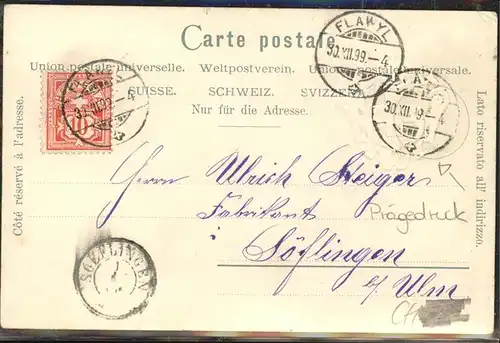 Carte postale.
Union postale universelle. Weltpostverein. Unione postale universale.
SUISSE. SCHWEIZ. SVIZZERA.
Nur für die Adresse.
Côté réservé à l'adresse.
Lato riservato all' indirizzo.
FLAWYL
30.XII.99.–4
FLAWYL
30.XII.99.–4
FLAWYL
30.XII.99.–4
10
Herrn Ulrich Steiger
Fabrikant
Prägedruck
Söflingen
a/ Ulm
SOEFLINGEN
CH